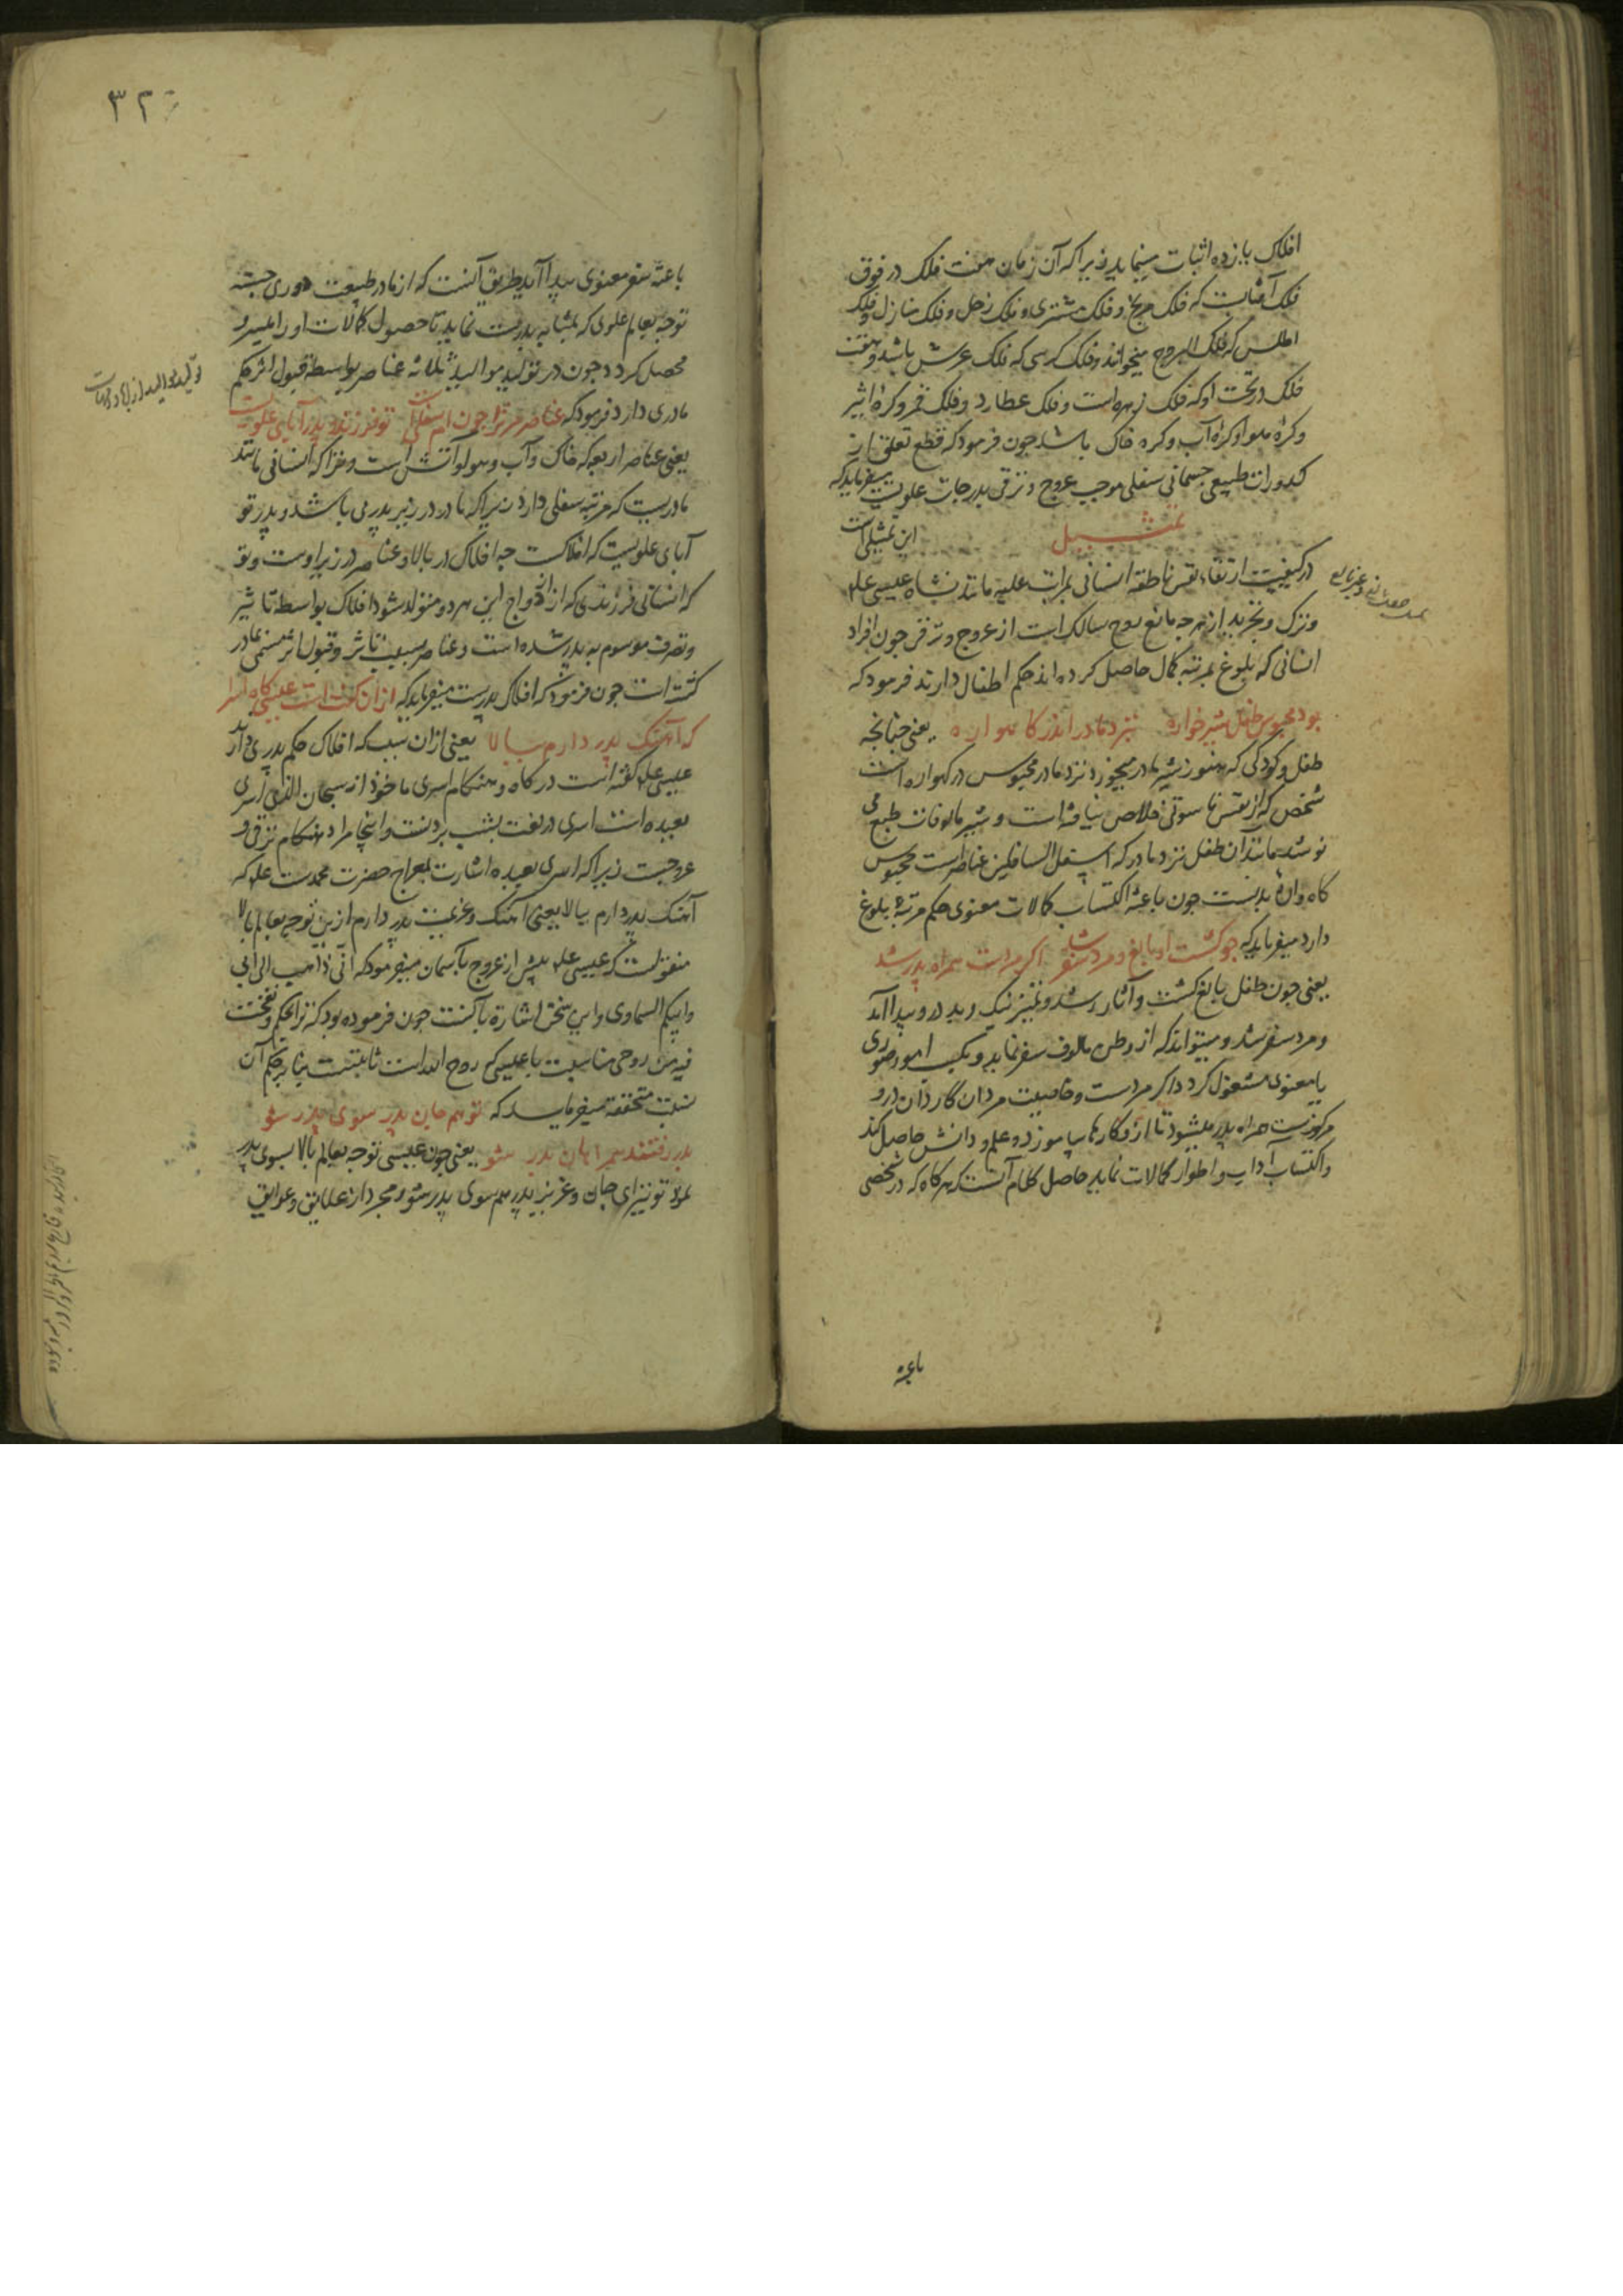 افلاک یازده اثبات مینماید زیرا که آن زمان هفت فلک در فوق
فلک آفتابست که فلک مریخ و فلک مشتری و فلک زحل و فلک منازل و فلک
اطلس که فلک البروج میخوانند و فلک کرسی که فلک عرش باشد و هفت
فلک در تحت او که فلک زهره است و فلک عطارد و فلک قمر و کرهٔ اثیر
و کرهٔ هوا و کرهٔ آب و کره خاک باشد چون فرمود که قطع تعلق از
کدورات طبیعی جسمانی سفلی موجب عروج و ترقی بدرجات علویست میفرماید که
تمثیل این تمثیلی است
در کیفیت ارتقاء نفس ناطقه انسانی بمراتب علیه مانند نشاه عیسی علم
و ترک و تجرید از هرچه مانع روح سالک است از عروج و ترقی چون افراد
انسانی که بلوغ بمرتبه کمال حاصل کرده اند حکم اطفال دارند فرمود که
بود محبوس طفل شیرخواره نزد مادر اندر کاهواره یعنی چنانچه
طفل و کودکی که هنوز شیر مادر میخورد نزد مادر محبوس در کهواره است
شخص که از نفس ناسوتی خلاص نیافته است و شیر مالوفات طبع می
نوشد مانند آن طفل نزد مادر که اسفل السافلین عناصرست محبوس
کاهوارهٔ بدنست چون باعثه اکتساب کمالات معنوی حکم مرتبهٔ بلوغ
دارد میفرماید که چو کشت او بالغ و مرد سفر شد اکر مردست همراه پدر شد
یعنی چون طفل بالغ کشت و آثار رشد و تمیز نیک و بد درو پیدا آمد
و مرد سفر شد و میتواند که از وطن مالوف سفر نماید و بکسب امور صوری
یا معنوی مشغول کردد اکر مردست و خاصیت مردان کاردان درو
مرکوزست همراه پدر میشود تا ازو کارها بیاموزد و علم و دانش حاصل کند
و اکتساب آداب و اطوار کمالات نماید حاصل کلام آنست که هر کاه که در شخصی
باعثه
۳۲
باعثهٔ سفر معنوی پیدا آید طریق آنست که از مادر طبیعت دوری جسته
توجه بعالم علوی که بمثابه پدرست نماید تا حصول کمالات او را میسر و
محصل کردد و چون در تولید موالید ثلاثه عناصر بواسطه قبول اثر حکم
مادری دارد فرمود که عناصر مر ترا چون ام سفلی است تو فرزند و پدر آبای علویست
یعنی عناصر اربعه که خاک و آب و هوا و آتش است و ترا که انسانی مانند
مادریست که مرتبه سفلی دارد زیرا که مادر در زیر پدر می باشد و پدر تو
آبای علویست که افلاکست چه افلاک در بالا و عناصر در زیر اوست و تو
که انسانی فرزندی که از ازدواج این هر دو متولد شود افلاک بواسطه تاثیر
و تصرف موسوم به پدر شده است و عناصر بسبب تاثر و قبول اثر مسمی بمادر
کشته است چون فرمود که افلاک پدرست میفرماید که ازان گفتست عیسی کاه اسرا
که آهنک پدر دارم ببالا یعنی ازان سبب که افلاک حکم پدری دارد
عیسی علم گفته است در کاه و هنکام اسری ماخوذ از سبحان الذی اسری
بعبده است اسری در لغت بشب بردنست و اینجا مراد هنکام ترقی و
عروجست زیرا که اسری بعبده اشارت بمعراج حضرت محمدست علم که
آهنک پدر دارم ببالا یعنی آهنک و عزیمت پدر دارم ازین توجه بعالم بالا
منقولست که عیسی علم پیش از عروج بآسمان میفرمود که انی ذاهب الی ابی
و ابیکم السماوی و این سخن اشارة بآنست چون فرموده بود که ترا بحکم و نفخت
فیه من روحی مناسبت با عیسی که روح الله است ثابتست بنابر حکم آن
نسبت متحققه میفرماید که تو هم جان پدر سوی پدر شو
بدر رفتند همراهان بدر شو یعنی چون عیسی توجه بعالم بالا بسوی پدر
نمود تو نیز ای جان و عزیز پدر هم سوی پدر شو و مجرد از علایق و عوایق